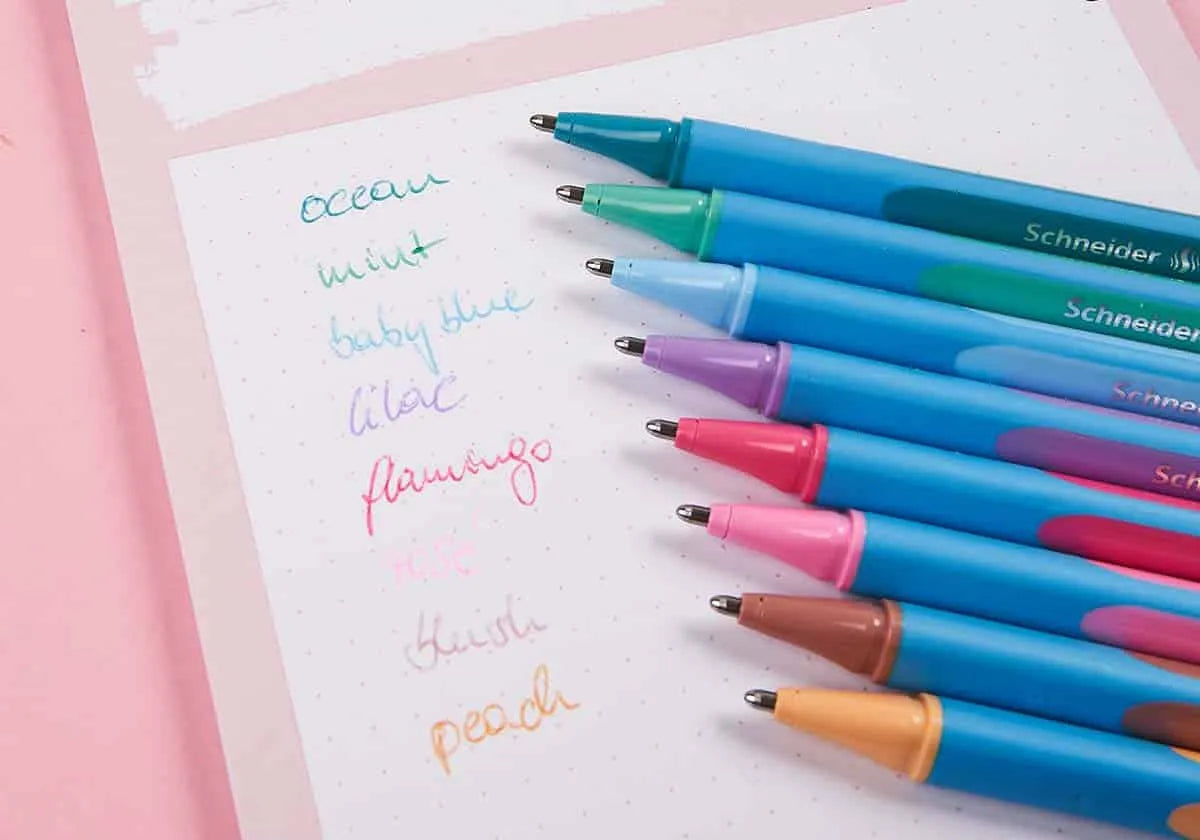 ocean
mint
baby blue
lilac
flamingo
rosé
blush
peach
Schneider
Schneider
Schne
Sch